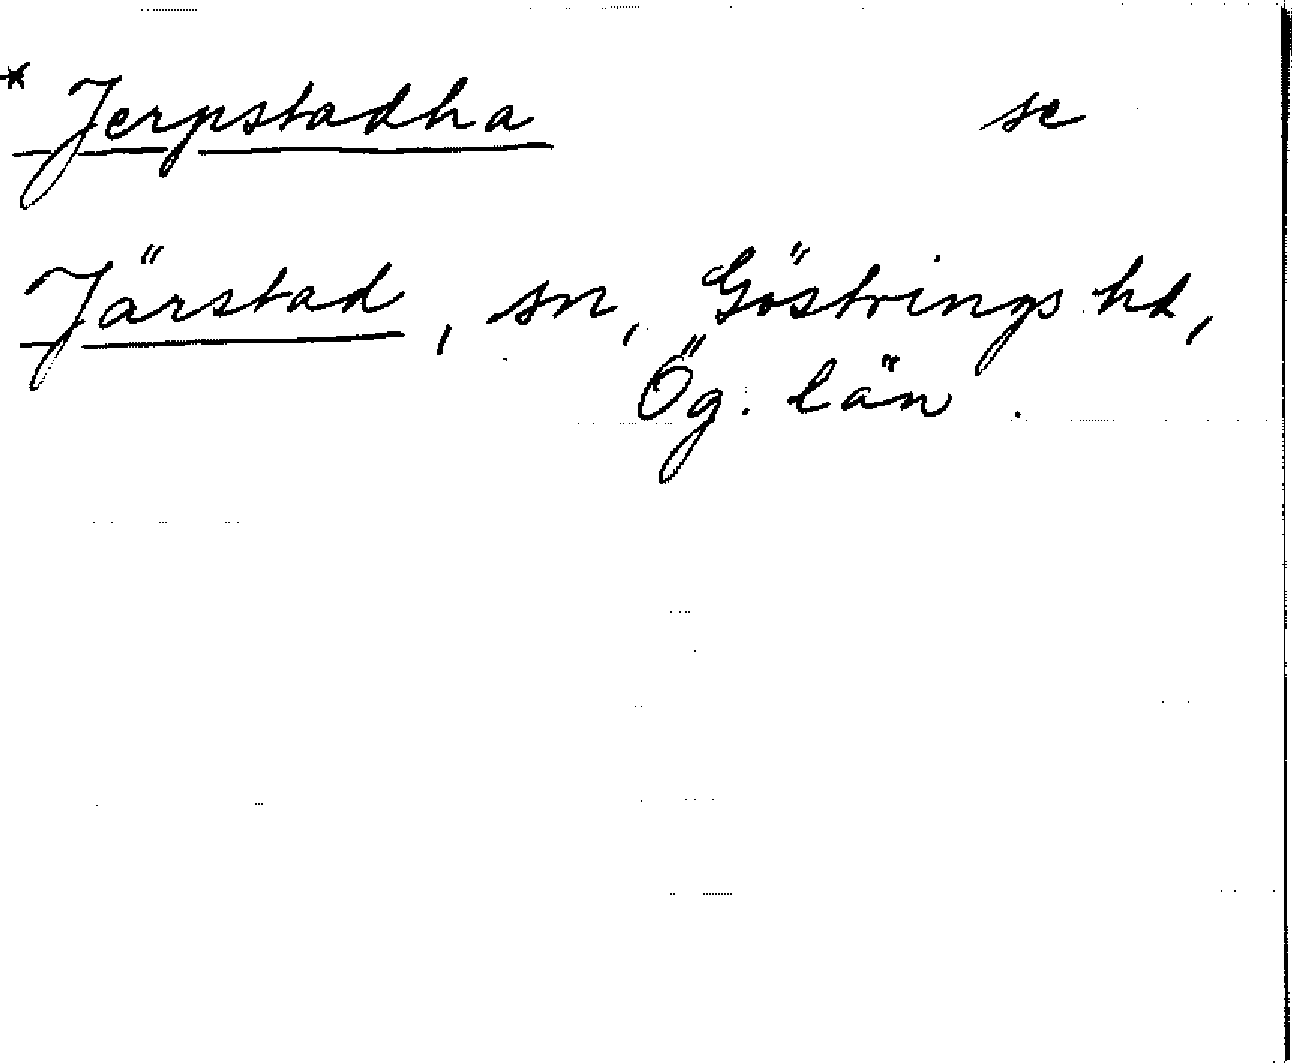 * Jerpstadha se
Järstad, sn, Göstrings hd,
Ög. län.